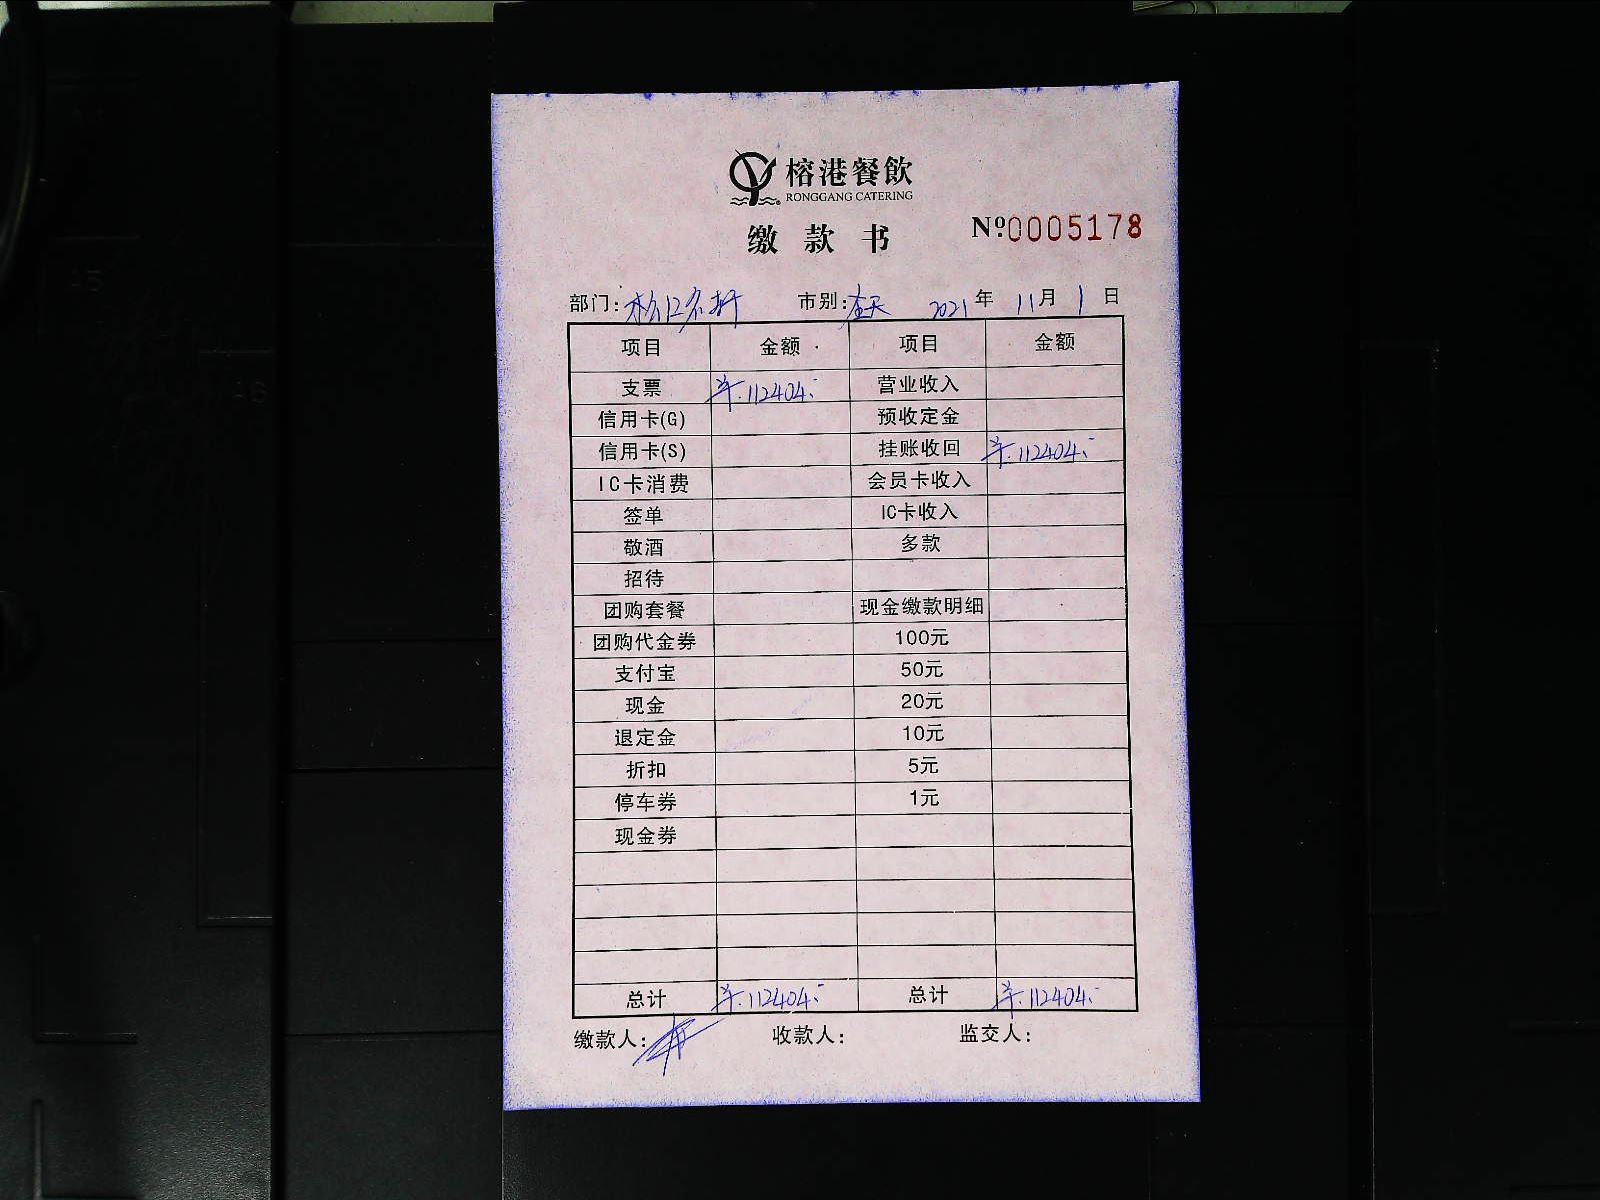 榕港餐飲
RONGGANG CATERING
缴款书 Nº0005178
部门: 松江名轩 市别: 全天 2021年 11月 1日
项目 金额 项目 金额
支票 ¥.112404.- 营业收入
信用卡(G) 预收定金
信用卡(S) 挂账收回 ¥.112404.-
IC卡消费 会员卡收入
签单 IC卡收入
敬酒 多款
招待
团购套餐 现金缴款明细
团购代金券 100元
支付宝 50元
现金 20元
退定金 10元
折扣 5元
停车券 1元
现金券
总计 ¥.112404.- 总计 ¥.112404.-
缴款人: 收款人: 监交人: